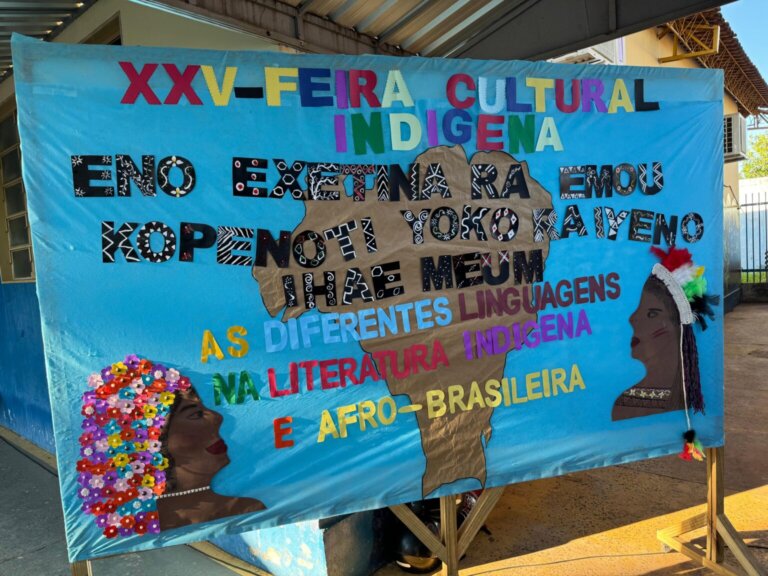 XXV-FEIRA CULTURAL
INDIGENA
ENO EXETINA RA EMOU
KOPENOTI YOKO KA IYENO
IHAE MEUM
AS DIFERENTES LINGUAGENS
NA LITERATURA INDIGENA
E AFRO-BRASILEIRA